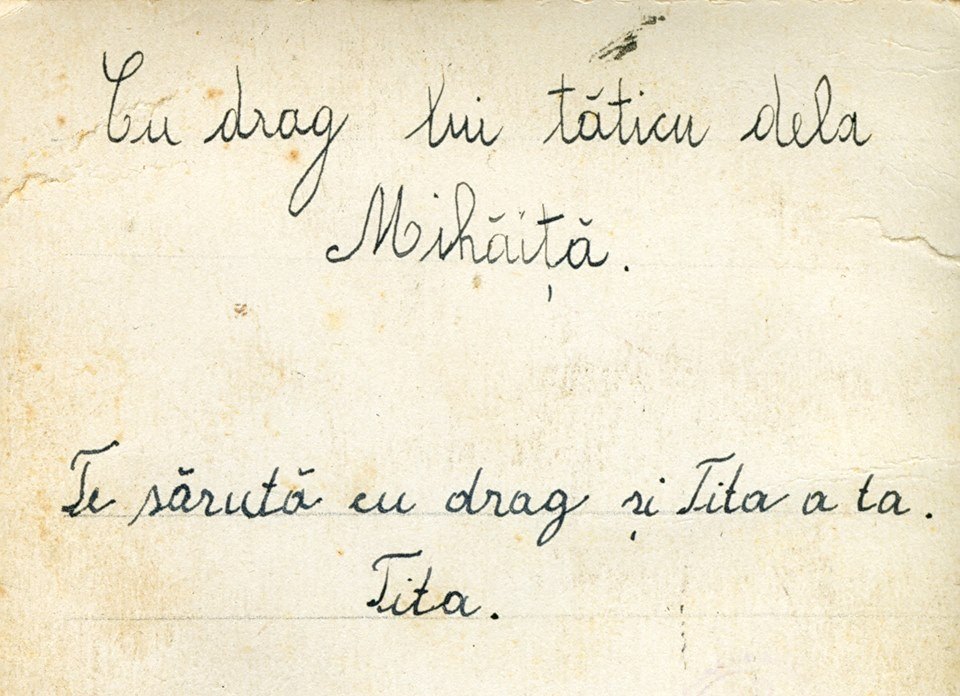 Cu drag lui tăticu dela
Mihăiță.
Te sărută cu drag și Tita a ta.
Tita.